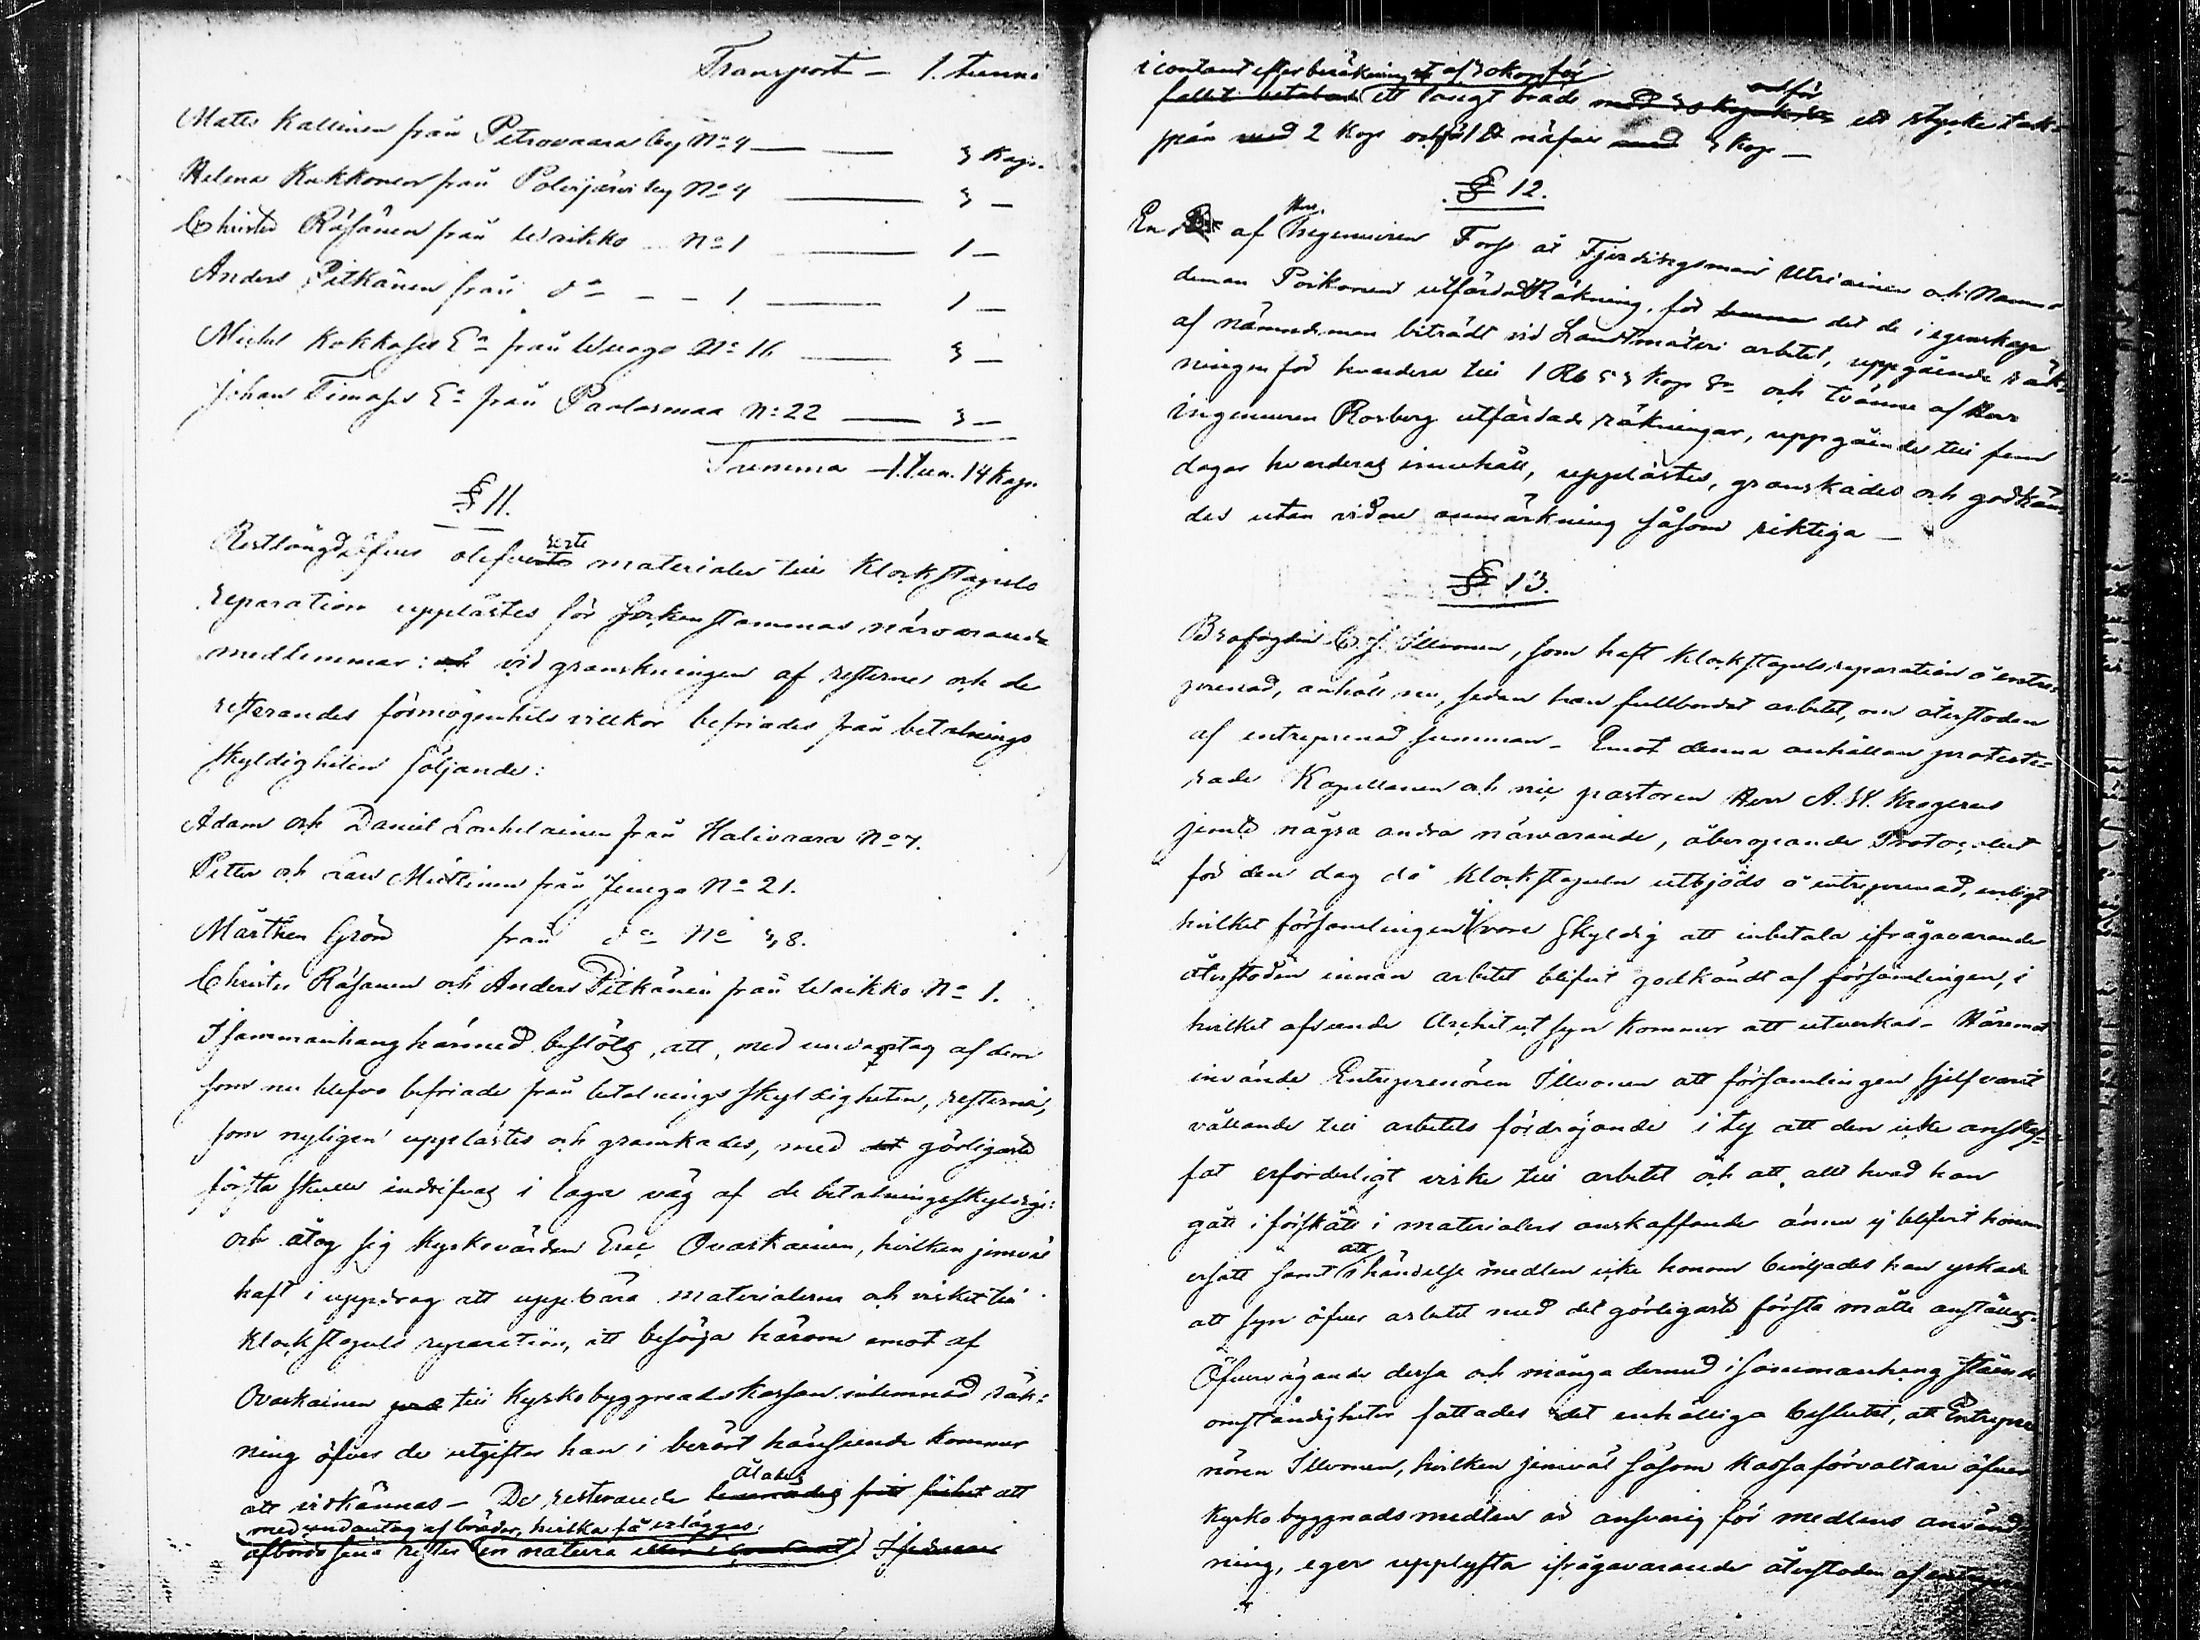 Transport – 1. tunna
Matts Kallinen från Petrovaara by No 4 — — 3 Kap.
Helena Kukkonen från Polvijärvi by No 4 — 3 –
Christer Räsänen från Waikko No 1 — 1 –
Anders Pitkänen från do – – 1 — 1 –
Michel Kokko från Wuogo No 16 — 3 –
Johan Timo från Paalasmaa No 22 — 3 –
Summa – 1. tun. 14 Kap.
§ 11.
Restlängd öfver olefvererte materialer till Klockstapels
reparation upplästes för sockenstämmas närvarande
medlemmar: och vid granskningen af resterne och de
resterandes förmögenhets villkor befriades från betalnings
skyldigheten följande:
Adam och Daniel Louhelainen från Halivaara No 7.
Petter och Lars Miettinen från Juuga No 21.
Mårthen Grön från do No 38.
Christer Räsänen och Anders Pitkänen från Waikko No 1.
I sammanhang härmed beslöts, att, med undantag af dem
som nu blefvo befriade från betalnings skyldigheten, resterna,
som nyligen upplästes och granskades, med det görligaste
första skulle indrifvas i laga väg af de betalningsskyldige:
och åtog sig Kyrkovärden Eric Ovaskainen, hvilken jemväl
haft i uppdrag att uppbära materialerna och virket till
Klockstapels reparation, att besörja härom emot af
Ovaskainen till Kyrkobyggnadskassan inlemnad räk:
ning öfver de utgifter han i berört hänseende kommer
att vidkännas – De resterande lemnades fritt att
ålades
med undantag af bräder, hvilka få erläggas
afbörda sina rester in natura eller i contant. Ifedrmer
i contant efter beräkning af 30 kop för
fallet betalas ett tolugt bräde med 30 kop och för ett stycke tak-
spån med 2 Kop och för 1 ℔ näfver med 3 Kop –
§ 12.
En af Herr Ingenieuren Forss åt Fjerdingsman Utriainen och Nämnde
deman Poikonen utfärdad Räkning, för det de i egenskap
af nämndeman biträdt vid Landtmäteri arbetet, uppgående räk-
ningen för hvardera till 1 Rb 53 Kop Sr och tvänne af Herr
Ingenieuren Rosberg utfärdade räkningar, uppgående till fem
dagar hvarderas innehåll, upplästes, granskades och godkän-
des utan vidare anmärkning såsom riktiga –
§ 13.
Brofogden C. J. Ilvonen, som haft klockstapelsreparation å entre-
prenad, anhöll nu, sedan han fullbordat arbetet, om återstoden
af entreprenad summan – Emot denna anhållan proteste=
rade Kapellanen och vice pastoren Herr A. W. Krogerus
jemte några andra närvarande, åberopande Protocollet
för den dag då klockstapeln utbjöds å entreprenad, enligt
hvilket församlingen ej vore skyldig att inbetala ifrågavarande
återstoden innan arbetet blifvit godkändt af församlingen, i
hvilket afseende Architect syn kommer att utverkas – Häremot
invände Entreprenören Ilvonen att församlingen sjelf varit
vållande till arbetets fördröjande i ty att den icke anskaf-
fat erforderligt virke till arbetet och att allt hvad han
gått i förskått i materialiers anskaffande ännu ej blifvit honom
ersatt samt att i händelse medlen icke honom beviljades han yrkade
att syn öfver arbetet med det görligaste första måtte anställas.
Öfvervägande dessa och många dermed i sammanhang stående
omständigheter fattades det enhälliga beslutet, att Entrepre
nören Ilvonen, hvilken jemväl såsom kassaförvaltare öfver
Kyrkobyggnads medlen är ansvarig för medlens använd-
ning, eger upplyfta ifrågavarande återstoden af entrepre